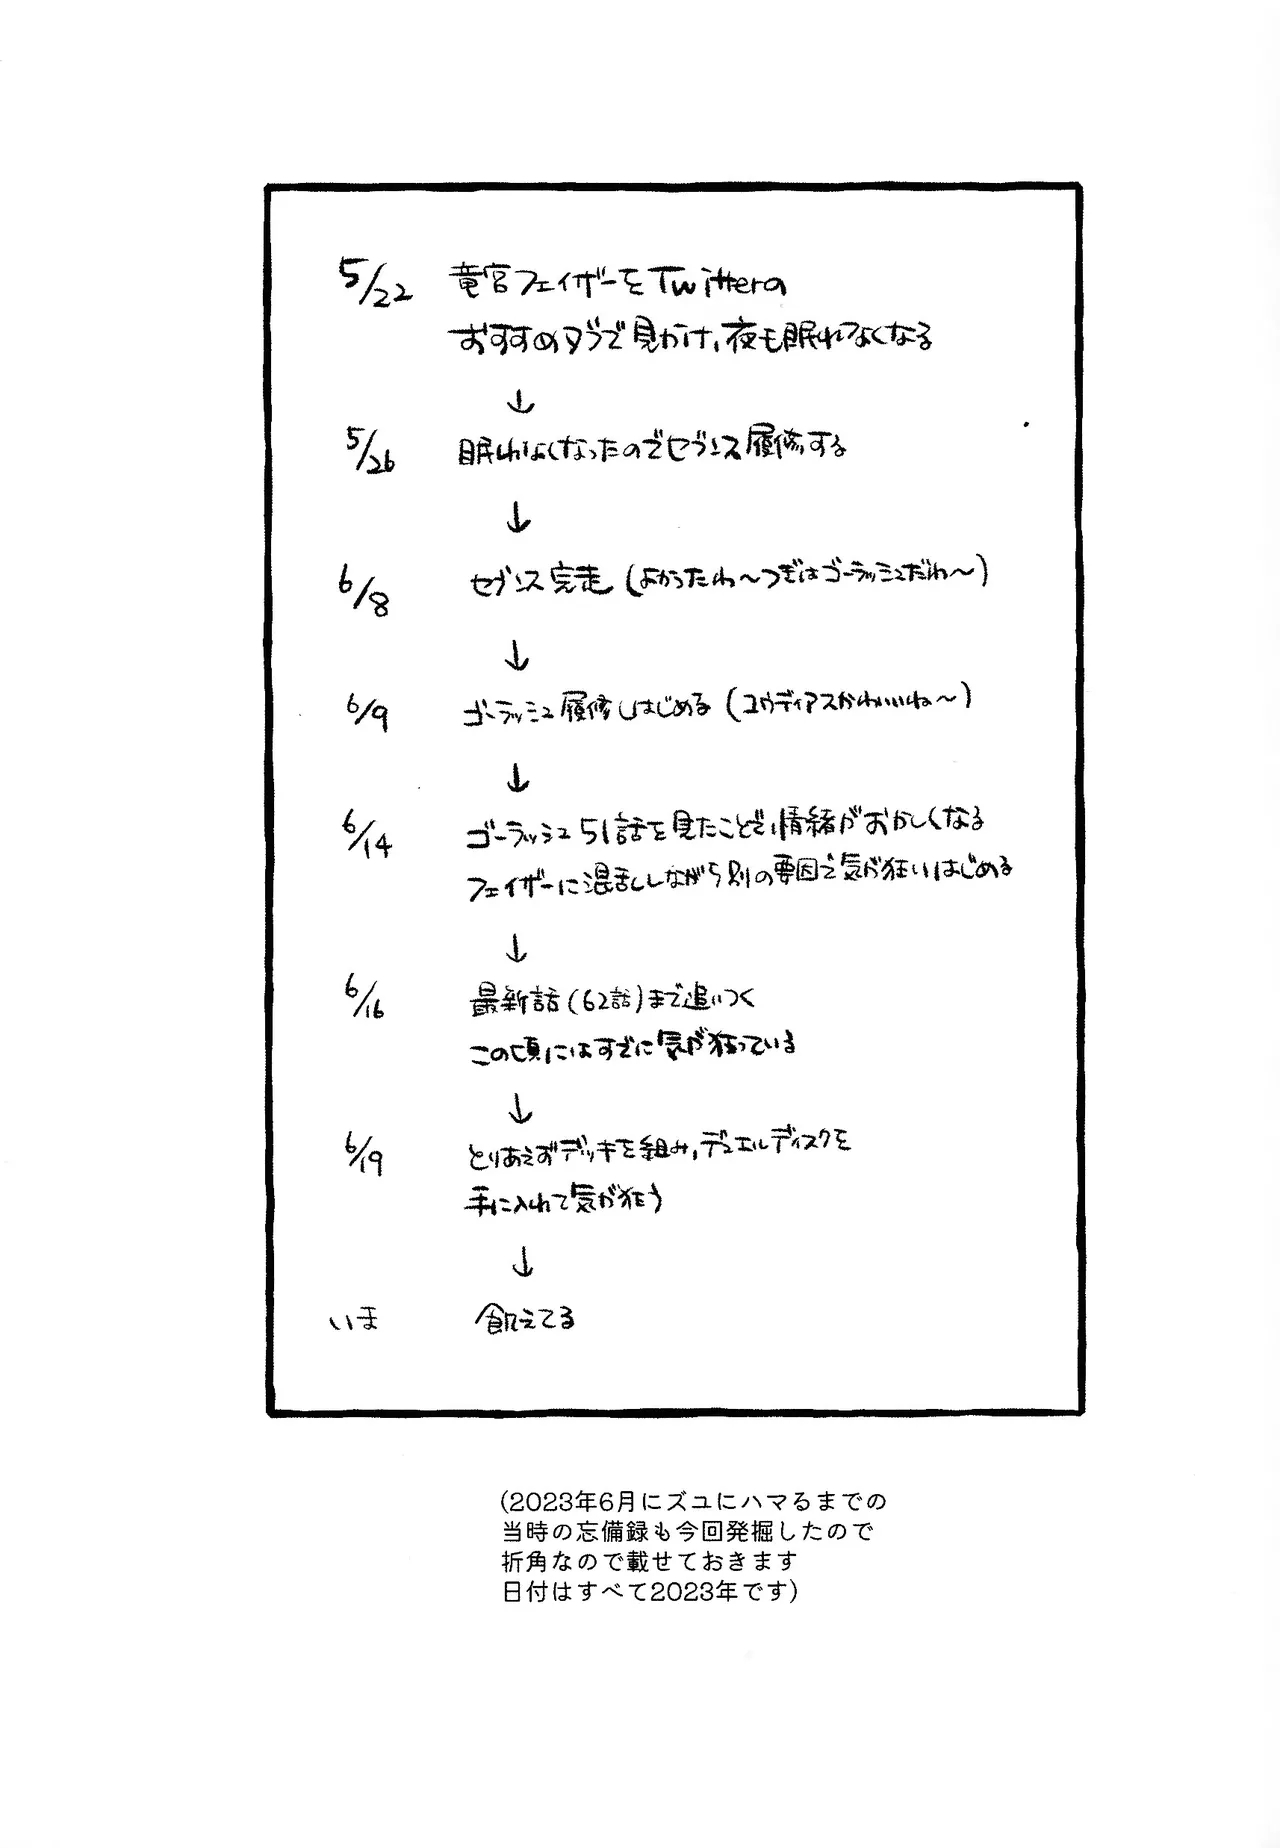 5/22 竜宮フェイザーをTwitterの
おすすめタブで見かけ、夜も眠れなくなる
↓
5/26 眠れなくなったのでセブンス履修する
↓
6/8 セブンス完走(よかったわ〜つぎはゴーラッシュだわ〜)
↓
6/9 ゴーラッシュ履修しはじめる(ユウディアスかわいいね〜)
↓
6/14 ゴーラッシュ51話を見たことで、情緒がおかしくなる
フェイザーに混乱しながら別の要因で気が狂いはじめる
↓
6/16 最新話(62話)まで追いつく
この頃にはすでに気が狂っている
↓
6/19 とりあえずデッキを組み、デュエルディスクを
手に入れて気が狂う
↓
いま 飢えてる
(2023年6月にズユにハマるまでの
当時の忘備録も今回発掘したので
折角なので載せておきます
日付はすべて2023年です)